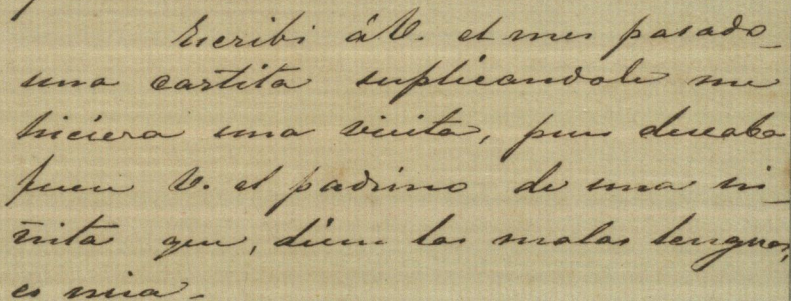 Escribí á V. el mes pasado
una cartita suplicandole me
hiciera una visita, pues deseaba
fuese V. el padrino de una ni-
ñita que, dicen las malas lenguas,
es mia.